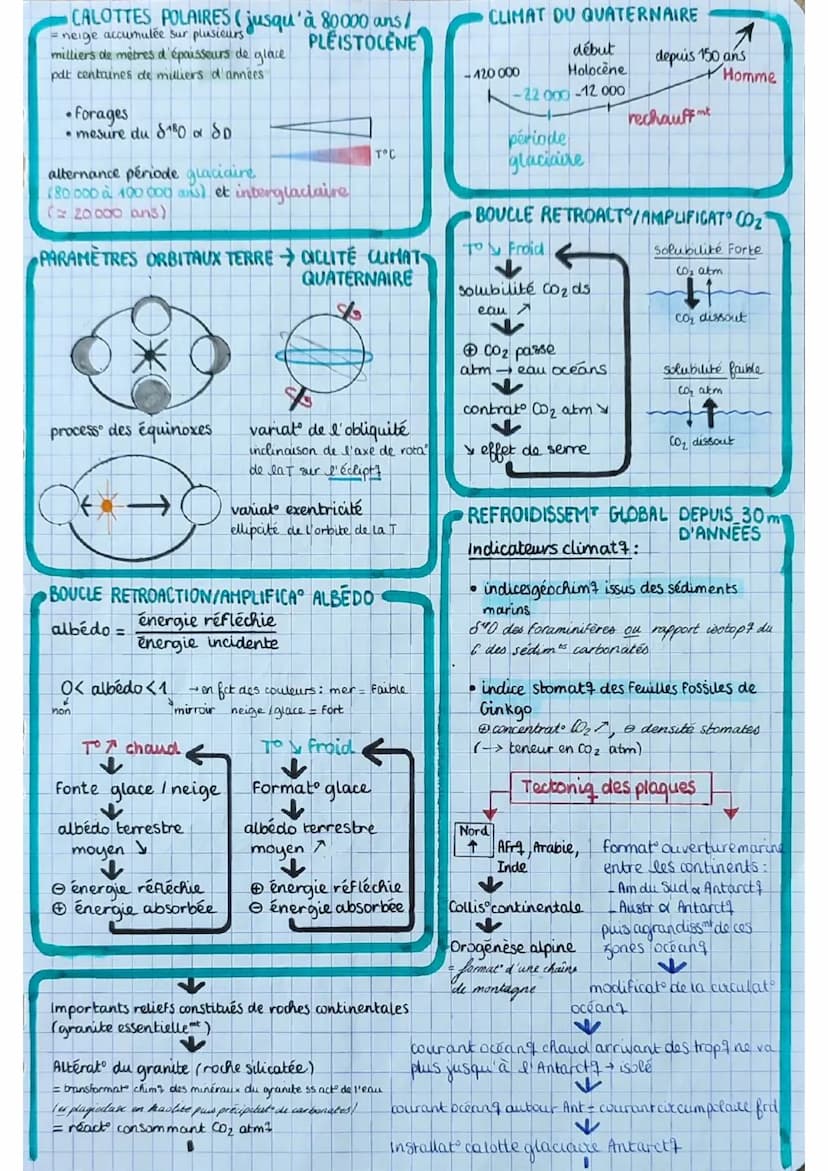 CALOTTES POLAIRES (jusqu'à 80000 ans/
PLÉISTOCÈNE)
= neige accumulée sur plusieurs
milliers de mètres d'épaisseurs de glace
pdt centaines de milliers d'années
• Forages
• mesure du δ¹⁸O α δD
T°C
alternance période glaciaire
(80 000 à 100 000 ans) et interglaciaire
(≃ 20 000 ans)
CLIMAT DU QUATERNAIRE
début
Holocène
-12 000
depuis 150 ans
Homme
-120 000
-22 000
réchauffᵐᵗ
période
glaciaire
PARAMÈTRES ORBITAUX TERRE → CICLITÉ CLIMAT
QUATERNAIRE
process° des équinoxes
variat° de l'obliquité
inclinaison de l'axe de rota°
de la T sur l'écliptq
variat° exentricité
ellipcité de l'orbite de la T
BOUCLE RETROACT°/AMPLIFICAT° CO₂
T° ↘ Froid
solubilité CO₂ ds
eau ↗
⊕ CO₂ passe
atm → eau océans
contrat° CO₂ atm ↘
↘ effet de serre
solubilité Forte
CO₂ atm
CO₂ dissout
solubilité faible
CO₂ atm
CO₂ dissout
BOUCLE RETROACTION/AMPLIFICA° ALBÉDO
albédo = énergie réfléchie
énergie incidente
0 < albédo < 1 → en fct des couleurs : mer = Faible
non mirroir neige/glace = Fort
T° ↗ chaud
Fonte glace / neige
albédo terrestre
moyen ↘
⊖ énergie réfléchie
⊕ énergie absorbée
T° ↘ Froid
Format° glace
albédo terrestre
moyen ↗
⊕ énergie réfléchie
⊖ énergie absorbée
REFROIDISSEMᵀ GLOBAL DEPUIS 30 m
D'ANNÉES
Indicateurs climatq :
• indices géochimq issus des sédiments
marins
δ¹⁸O des Foraminifères ou rapport isotopq du
C des sédimᵗˢ carbonatés
• indice stomatq des Feuilles Fossiles de
Ginkgo
⊕ concentrat° CO₂ ↗, ⊖ densité stomates
(→ teneur en CO₂ atm)
Tectoniq des plaques
Nord
↑
AFrq, Arabie,
Inde
Collis° continentale
Orogénèse alpine
= format° d'une chaîne
de montagne
Format° ouverture marine
entre les continents :
- Am du Sud α Antarctq
- Austr α Antarctq
puis agrandissᵐᵗ de ces
zones océanq
modificat° de la circulat°
océanq
courant océanq chaud arrivant des tropq ne va
plus jusqu'à l'Antarctq → isolé
courant océanq autour Ant = courant circumpolaire frd
Installat° calotte glaciaire Antarctq
Importants reliefs constitués de roches continentales
(granite essentielleᵐᵗ)
Altérat° du granite (roche silicatée)
= transformat° chimq des minéraux du granite ss act° de l'eau
plagioclase en kaolite puis précipitat° de carbonates)
= réact° consommant CO₂ atmq